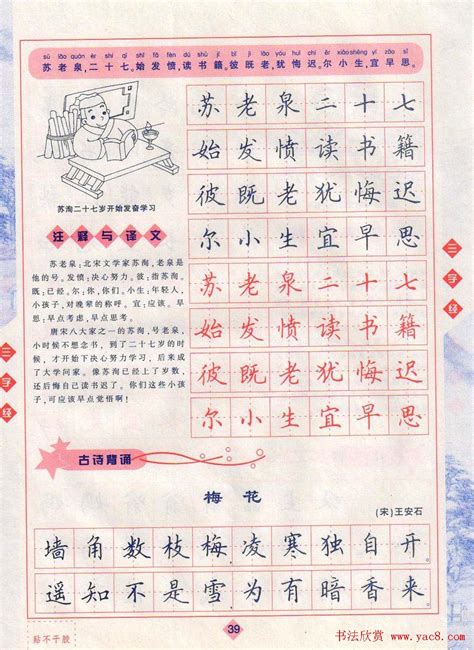 sū lǎo quán èr shí qī shǐ fā fèn dú shū jí bǐ jì lǎo yóu huǐ chí ěr xiǎo shēng yí zǎo sī
苏老泉,二十七。始发愤,读书籍。彼既老,犹悔迟。尔小生,宜早思。
苏洵二十七岁开始发奋学习
注释与译文
苏老泉:北宋文学家苏洵,老泉是
他的号。发愤:决心努力。彼:指苏洵。
既:已经。尔:你,你们。小生:年轻人,
小孩子,对晚辈的称呼。宜:应该。早
思:早点考虑,早点思考。
唐宋八大家之一的苏洵,号老泉,
小时候不想念书,到了二十七岁的时
候,才开始下决心努力学习,后来成
了大学问家。像苏洵已经上了岁数,
还后悔自己读书迟了。你们这些小孩
子,可应该早点觉悟啊!
苏老泉二十七
始发愤读书籍
彼既老犹悔迟
尔小生宜早思
苏老泉二十七
始发愤读书籍
彼既老犹悔迟
尔小生宜早思
三字经
三字经
古诗背诵
梅花
(宋)王安石
墙角数枝梅,凌寒独自开。
遥知不是雪,为有暗香来。
39
贴不干胶
书法欣赏
www.yac8.com